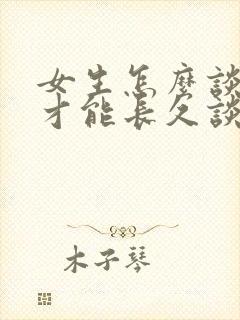 女生怎麼談
才能長久談
木子琴